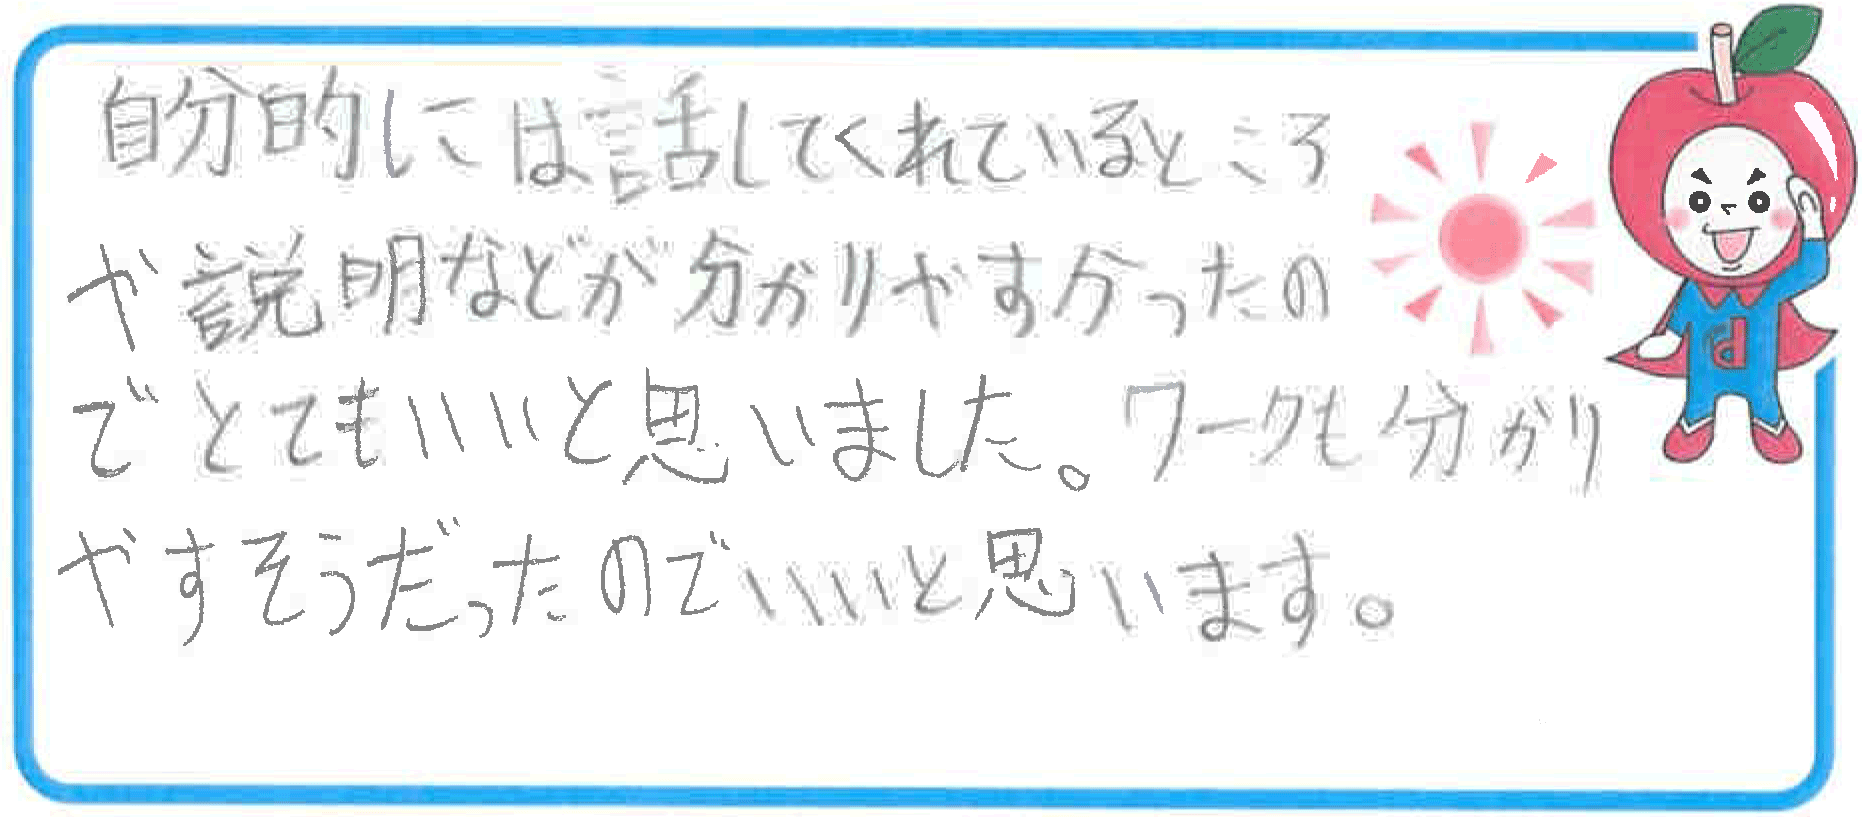 自分的には話してくれているところ
や説明などが分かりやすかったの
でとてもいいと思いました。ワークも分かり
やすそうだったのでいいと思います。
d